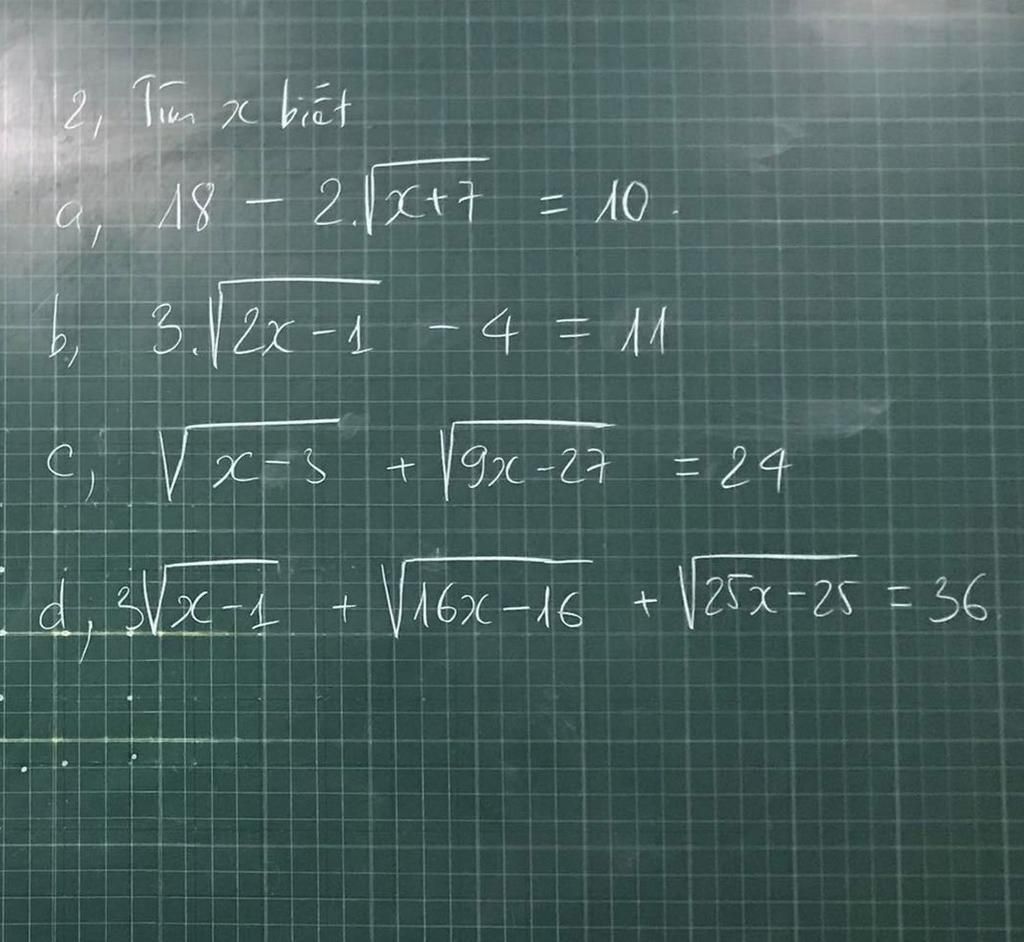 2, Tìm x biết
a, 18 - 2.√(x+7) = 10.
b, 3.√(2x-1) - 4 = 11
c, √(x-3) + √(9x-27) = 24
d, 3√(x-1) + √(16x-16) + √(25x-25) = 36.